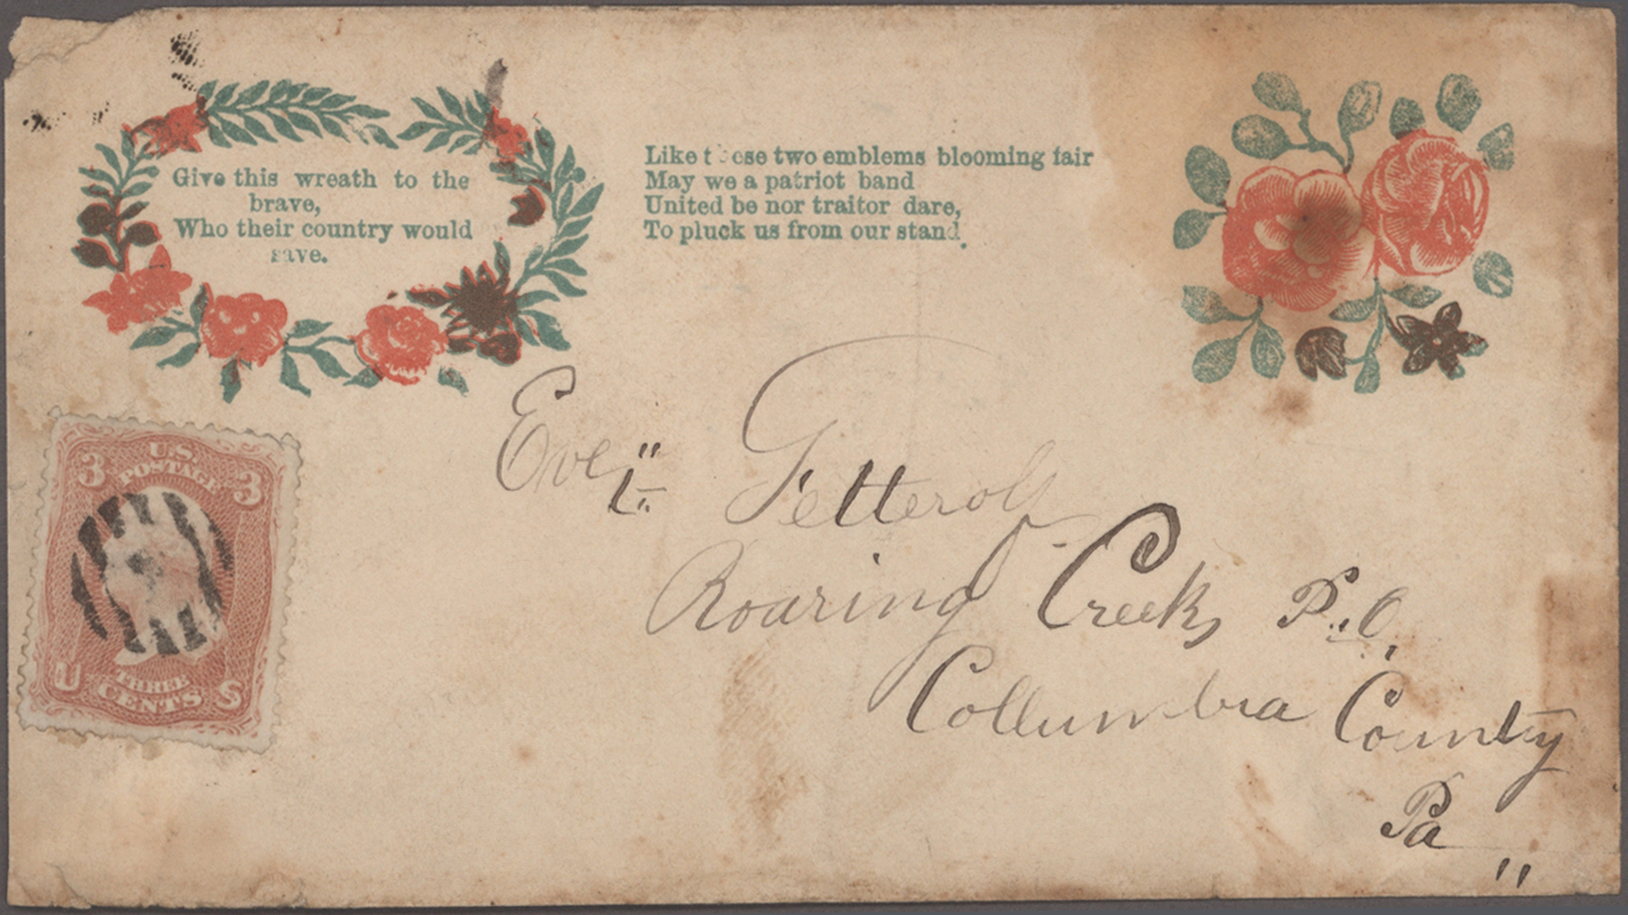 Give this wreath to the
brave,
Who their country would
save.
Like these two emblems blooming fair
May we a patriot band
United be nor traitor dare,
To pluck us from our stand.
3 U.S. 3
POSTAGE
U THREE S
CENTS
Fetterolf
Roaring Creek, P.O.,
Collumbia County
Pa "